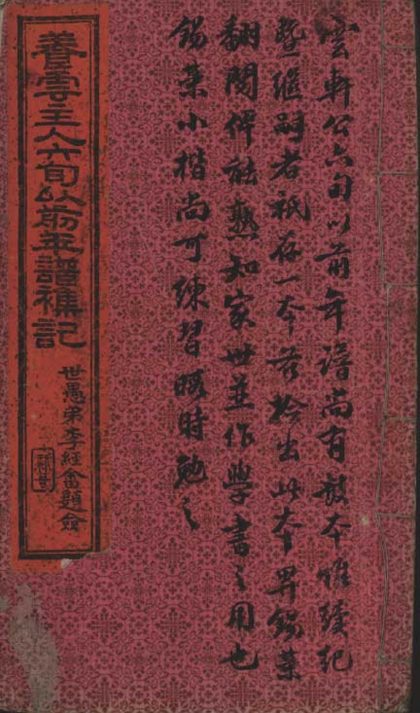 雲軒公六旬以前年譜尚有數本惟續紀
暨繼嗣者祇存一本茲撿出此本畀錫葉
翻閱俾能熟知家世並作學書之用也
錫葉小楷尚可練習暇時勉之
養雲主人六旬以前年譜雜記
世愚弟李經畬題簽